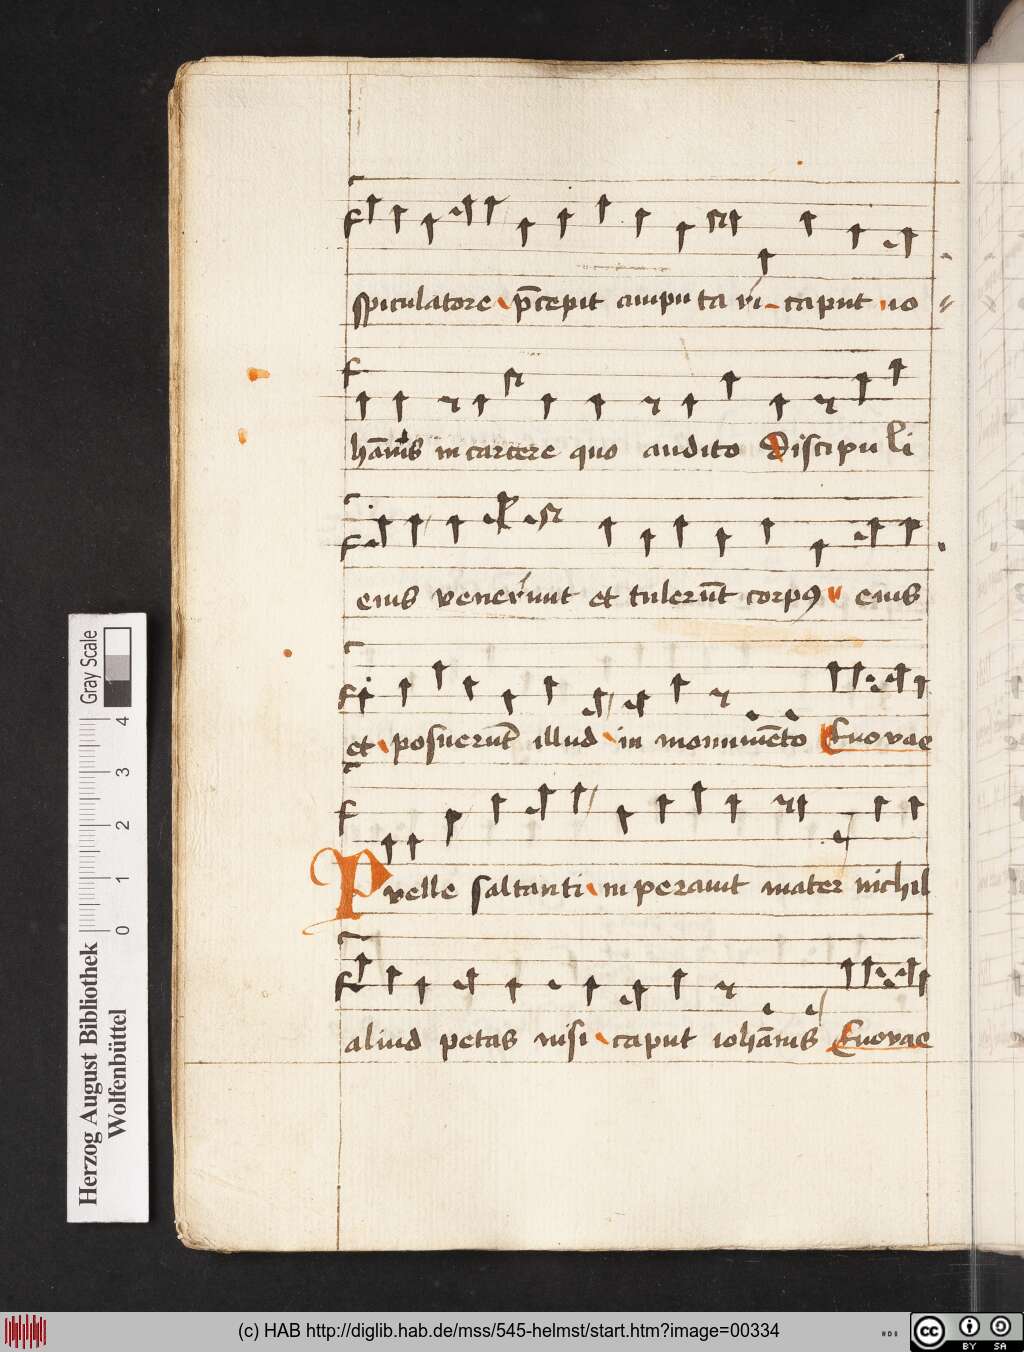 spiculatore p̄cepit amputari caput io
hānis in carcere quo audito Discipuli
eius venerunt et tulerūt corpꝯ eius
et posuerūt illud in monumēto Euovae
Puelle saltanti inperauit mater nichil
aliud petas nisi caput iohānis Euovae
Gray Scale
4
3
2
1
0
Herzog August Bibliothek
Wolfenbüttel
(c) HAB http://diglib.hab.de/mss/545-helmst/start.htm?image=00334
cc BY SA